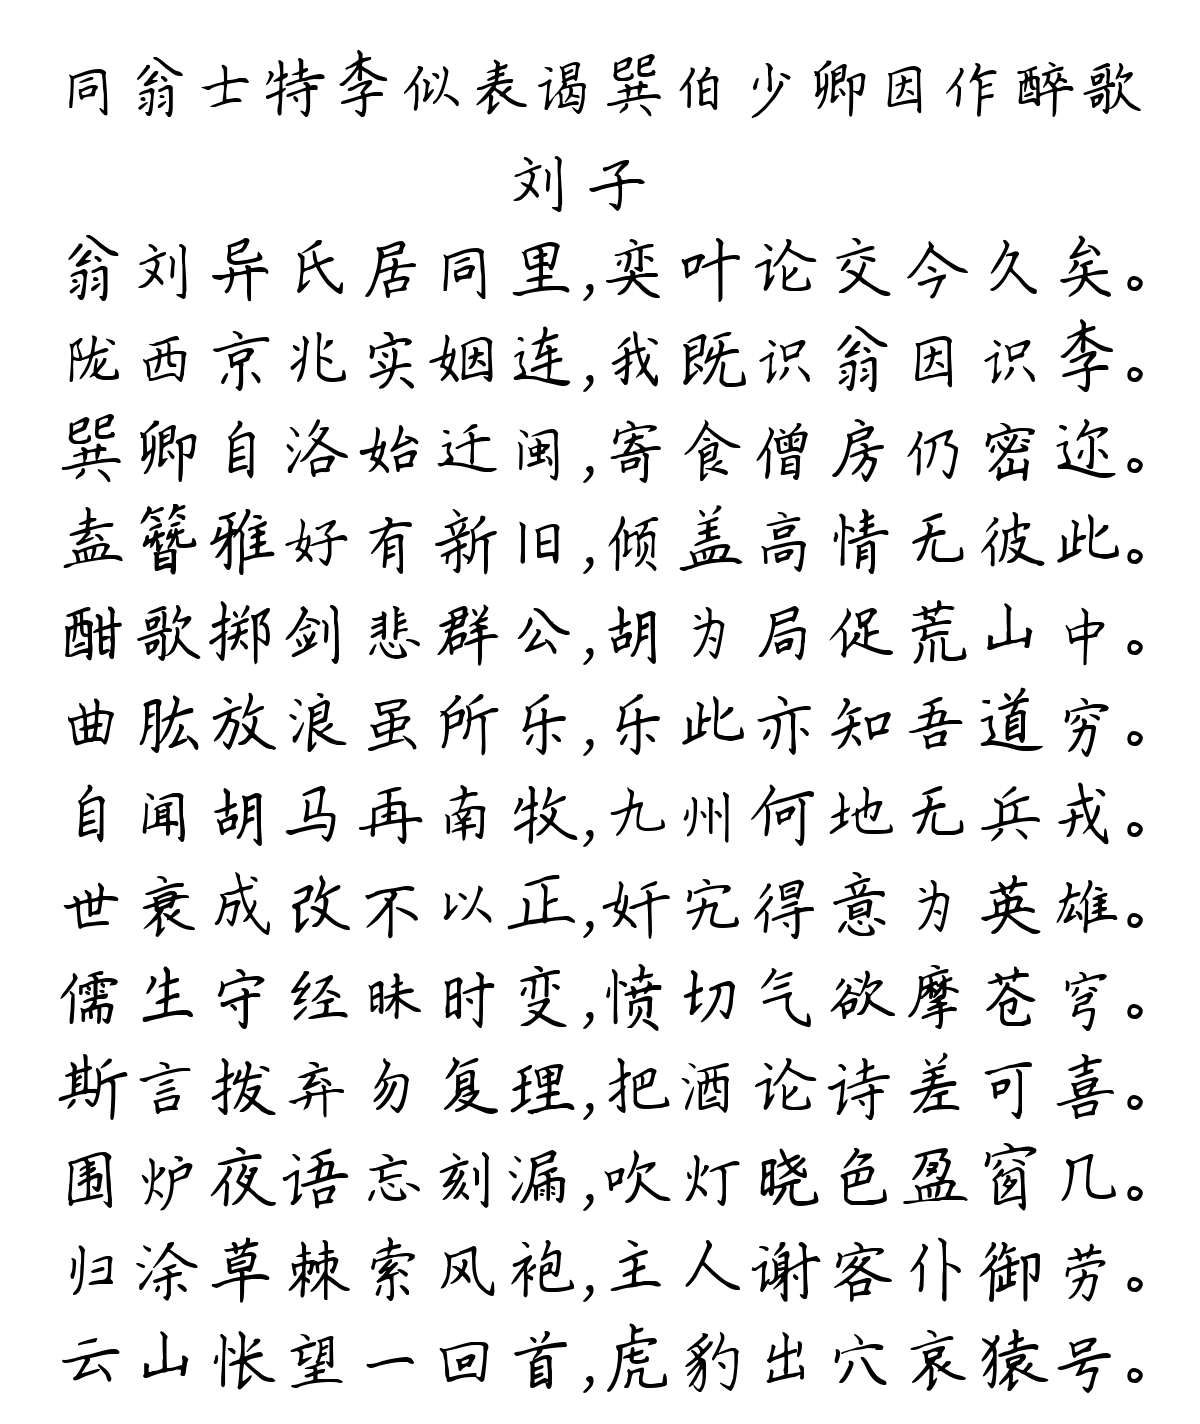 同翁士特李似表谒巽伯少卿因作醉歌
刘子
翁刘异氏居同里,奕叶论交今久矣。
陇西京兆实姻连,我既识翁因识李。
巽卿自洛始迁闽,寄食僧房仍密迩。
盍簪雅好有新旧,倾盖高情无彼此。
酣歌掷剑悲群公,胡为局促荒山中。
曲肱放浪虽所乐,乐此亦知吾道穷。
自闻胡马再南牧,九州何地无兵戎。
世衰成改不以正,奸宄得意为英雄。
儒生守经昧时变,愤切气欲摩苍穹。
斯言拨弃勿复理,把酒论诗差可喜。
围炉夜语忘刻漏,吹灯晓色盈窗几。
归涂草棘索风袍,主人谢客仆御劳。
云山怅望一回首,虎豹出穴哀猿号。